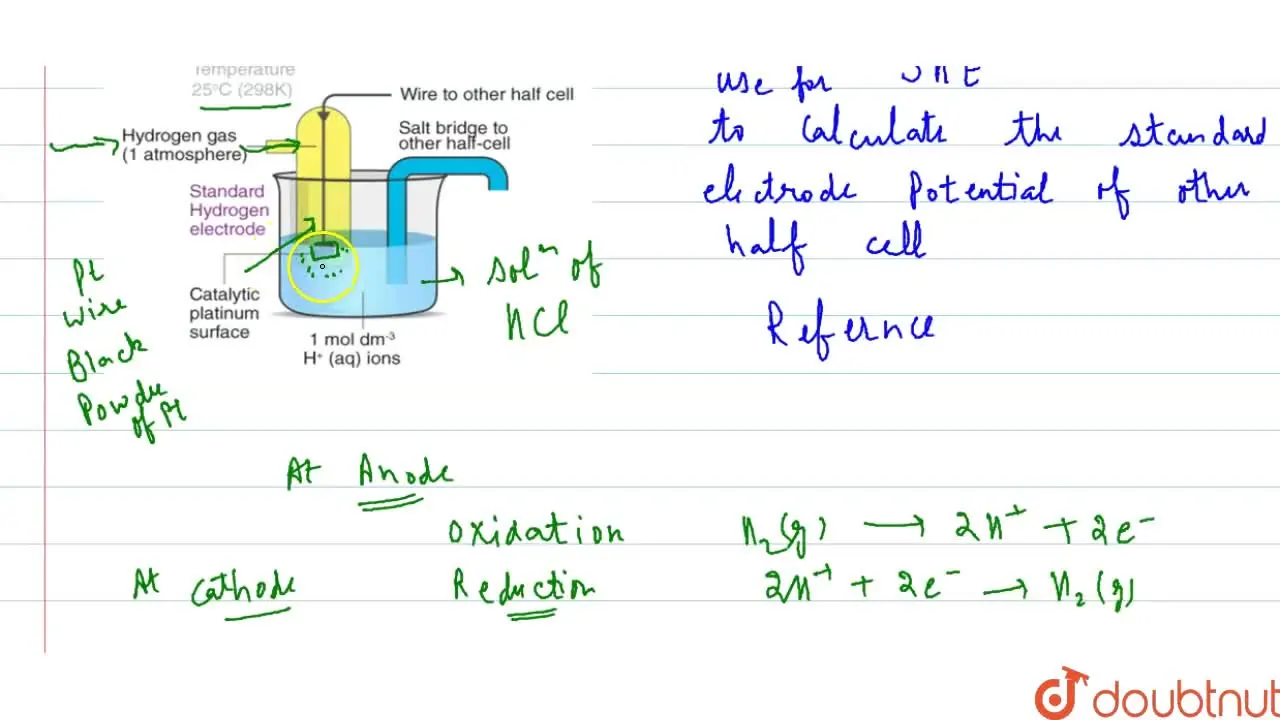 Temperature
25°C (298K)
Wire to other half cell
Hydrogen gas
(1 atmosphere)
Salt bridge to
other half-cell
Standard
Hydrogen
electrode
Catalytic
platinum
surface
1 mol dm⁻³
H⁺ (aq) ions
Pt
wire
Black
Powder
of Pt
solⁿ of
HCl
use for SHE
to calculate the standard
electrode Potential of other
half cell
Refernce
At Anode
Oxidation H₂(g) → 2H⁺ + 2e⁻
At Cathode Reduction 2H⁺ + 2e⁻ → H₂(g)
doubtnut